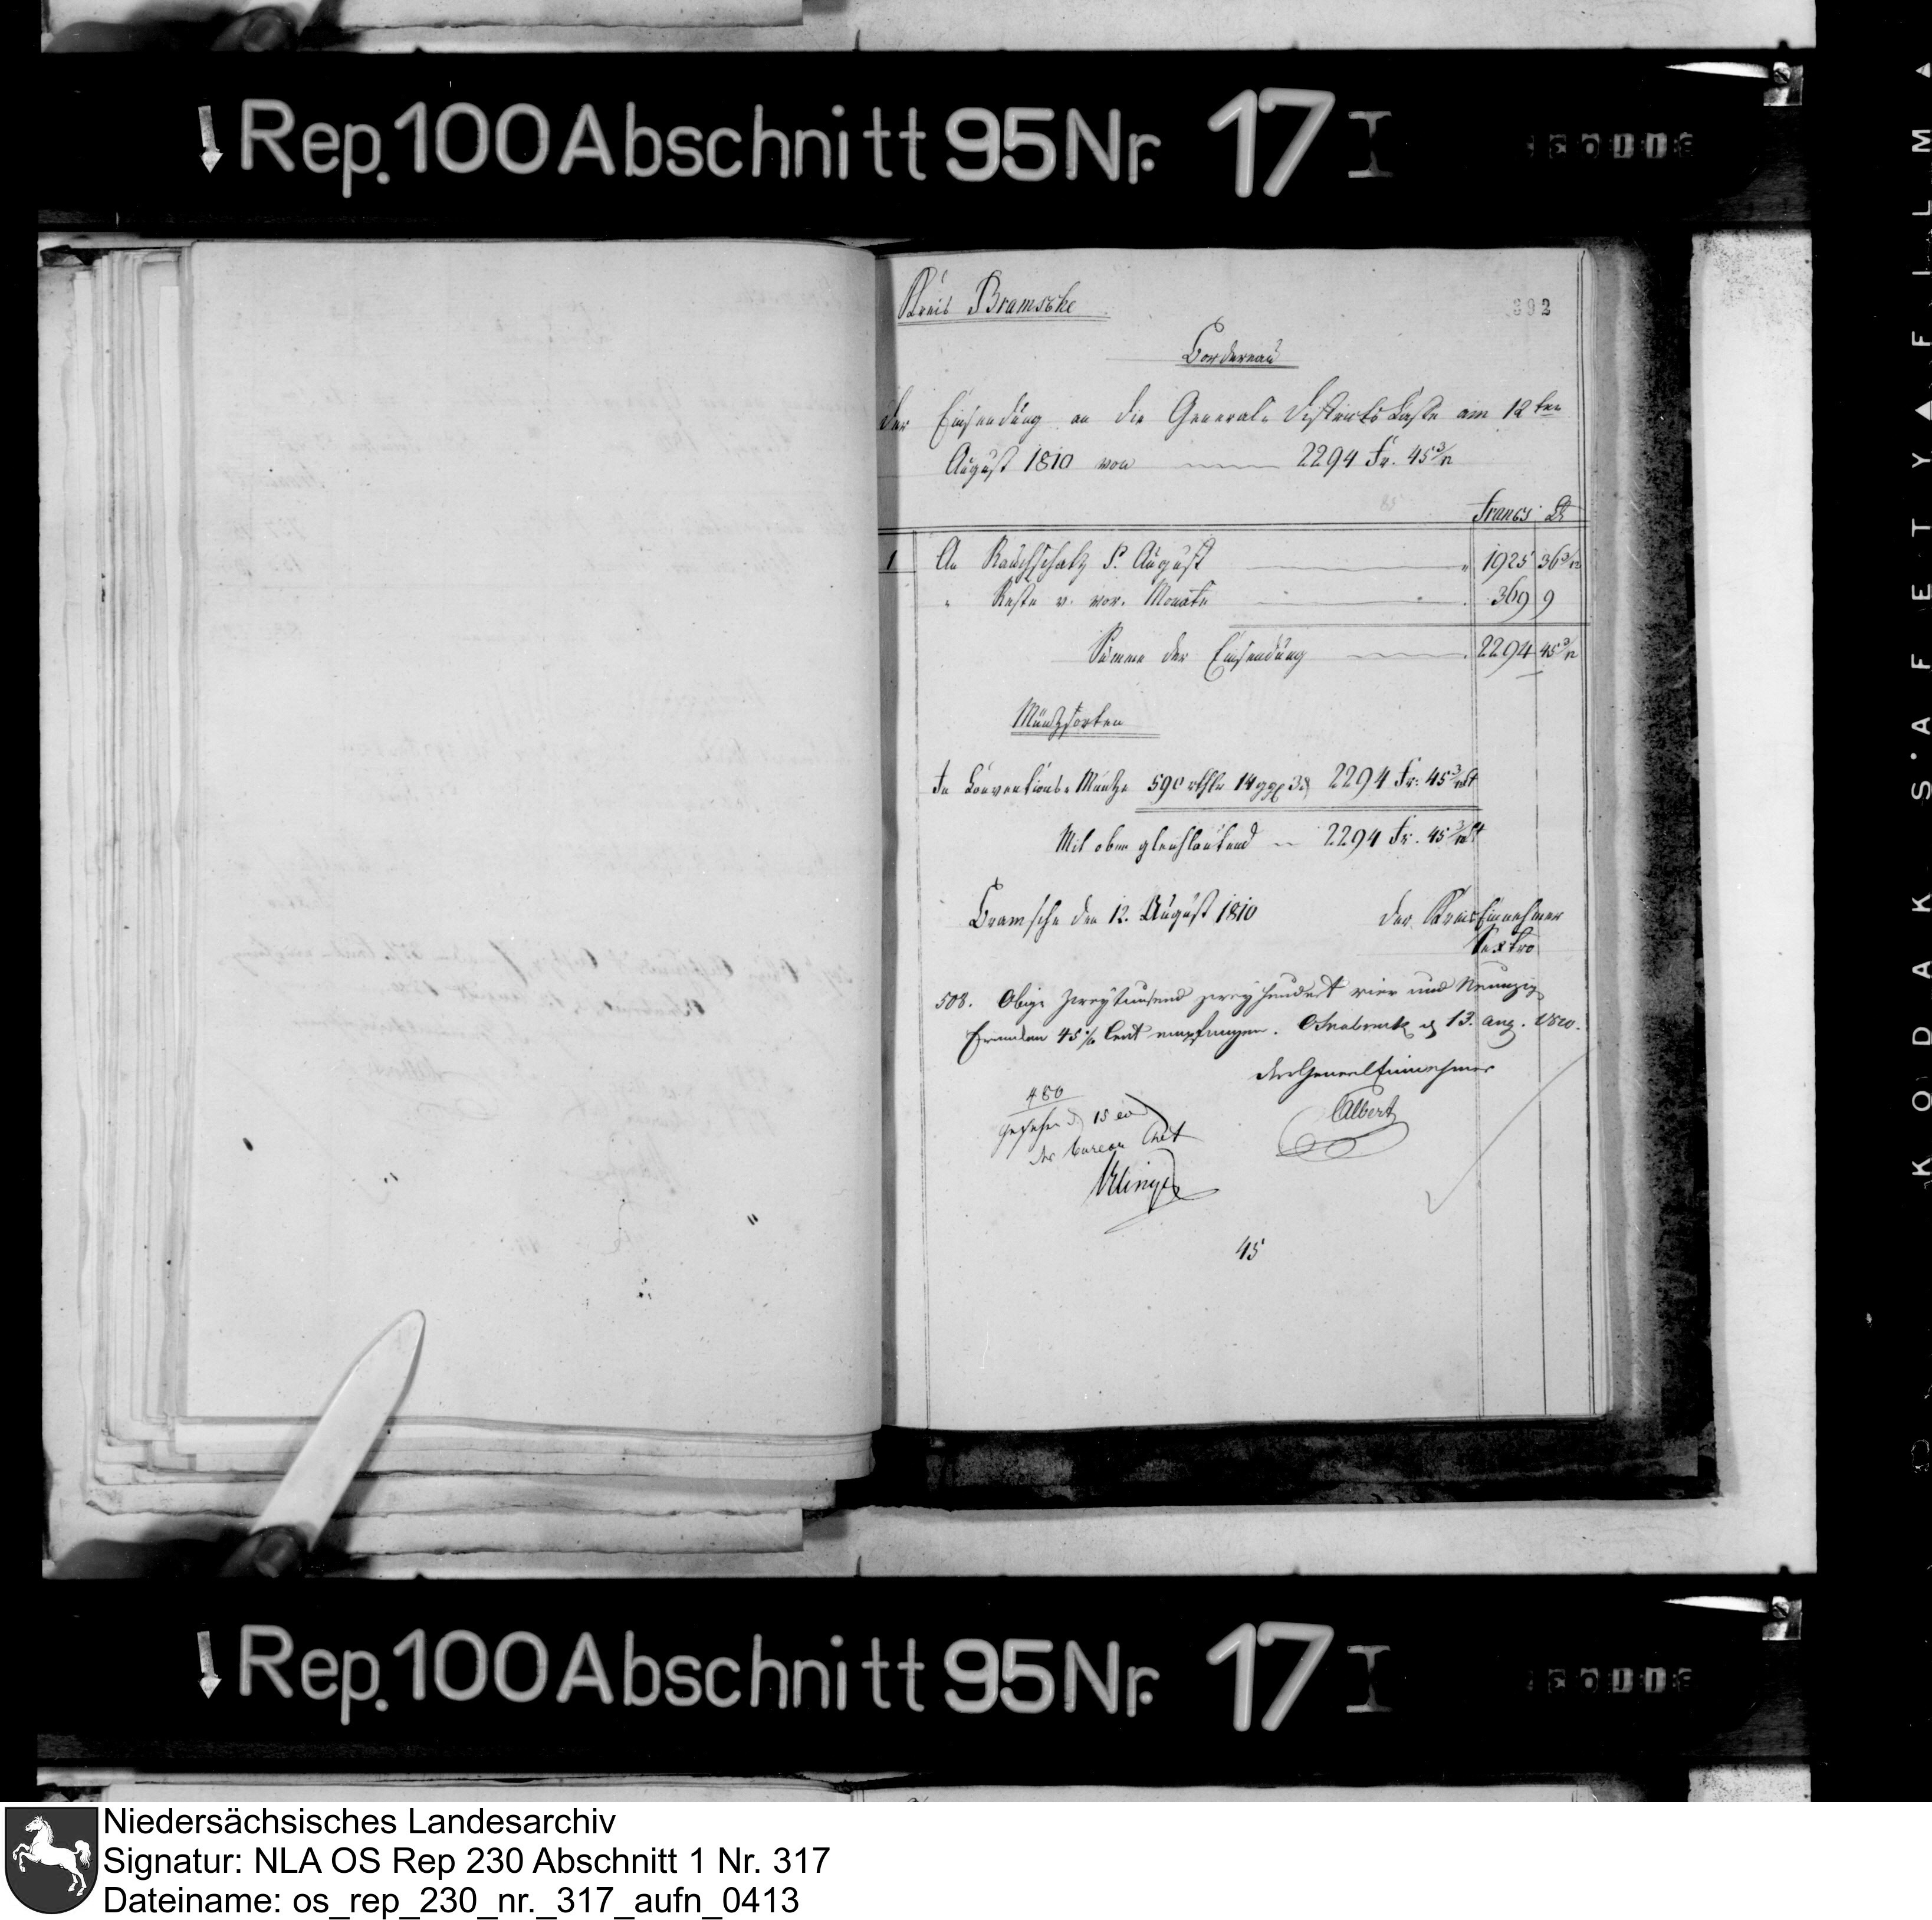 Rep. 100 Abschnitt 95 Nr. 17 I
Kreis Bramsche
392
Bordereau
der Einsendung an die General- Districts Casse am 12ten
August 1810 von 2294 Fr. 45 3/12
Francs Ct
1 An Rauchschatz p. August 1925 36 3/12
" Reste v. vor. Monate 369 9
Summe der Einsendung 2294 45 3/12
Müntzsorten
In Conventions-Müntze 590 rthlr 14 ggr 3 d 2294 Fr. 45 3/12 Ct
Mit oben gleichlautend 2294 Fr. 45 3/12 Ct
Bramsche den 12. August 1810
Der Kreis Einnehmer
Sextro
508. Obige zweytausend zweyhundert vier und Neunzig
Franken 45 Cent empfangen. Osnabrück d 13. Aug. 1810.
Der General Einnehmer
Albert
480
Gesehen d 15
der Bureau Chef
45
Rep. 100 Abschnitt 95 Nr. 17 I
KODAK SAFETY FILM
Niedersächsisches Landesarchiv
Signatur: NLA OS Rep 230 Abschnitt 1 Nr. 317
Dateiname: os_rep_230_nr._317_aufn_0413